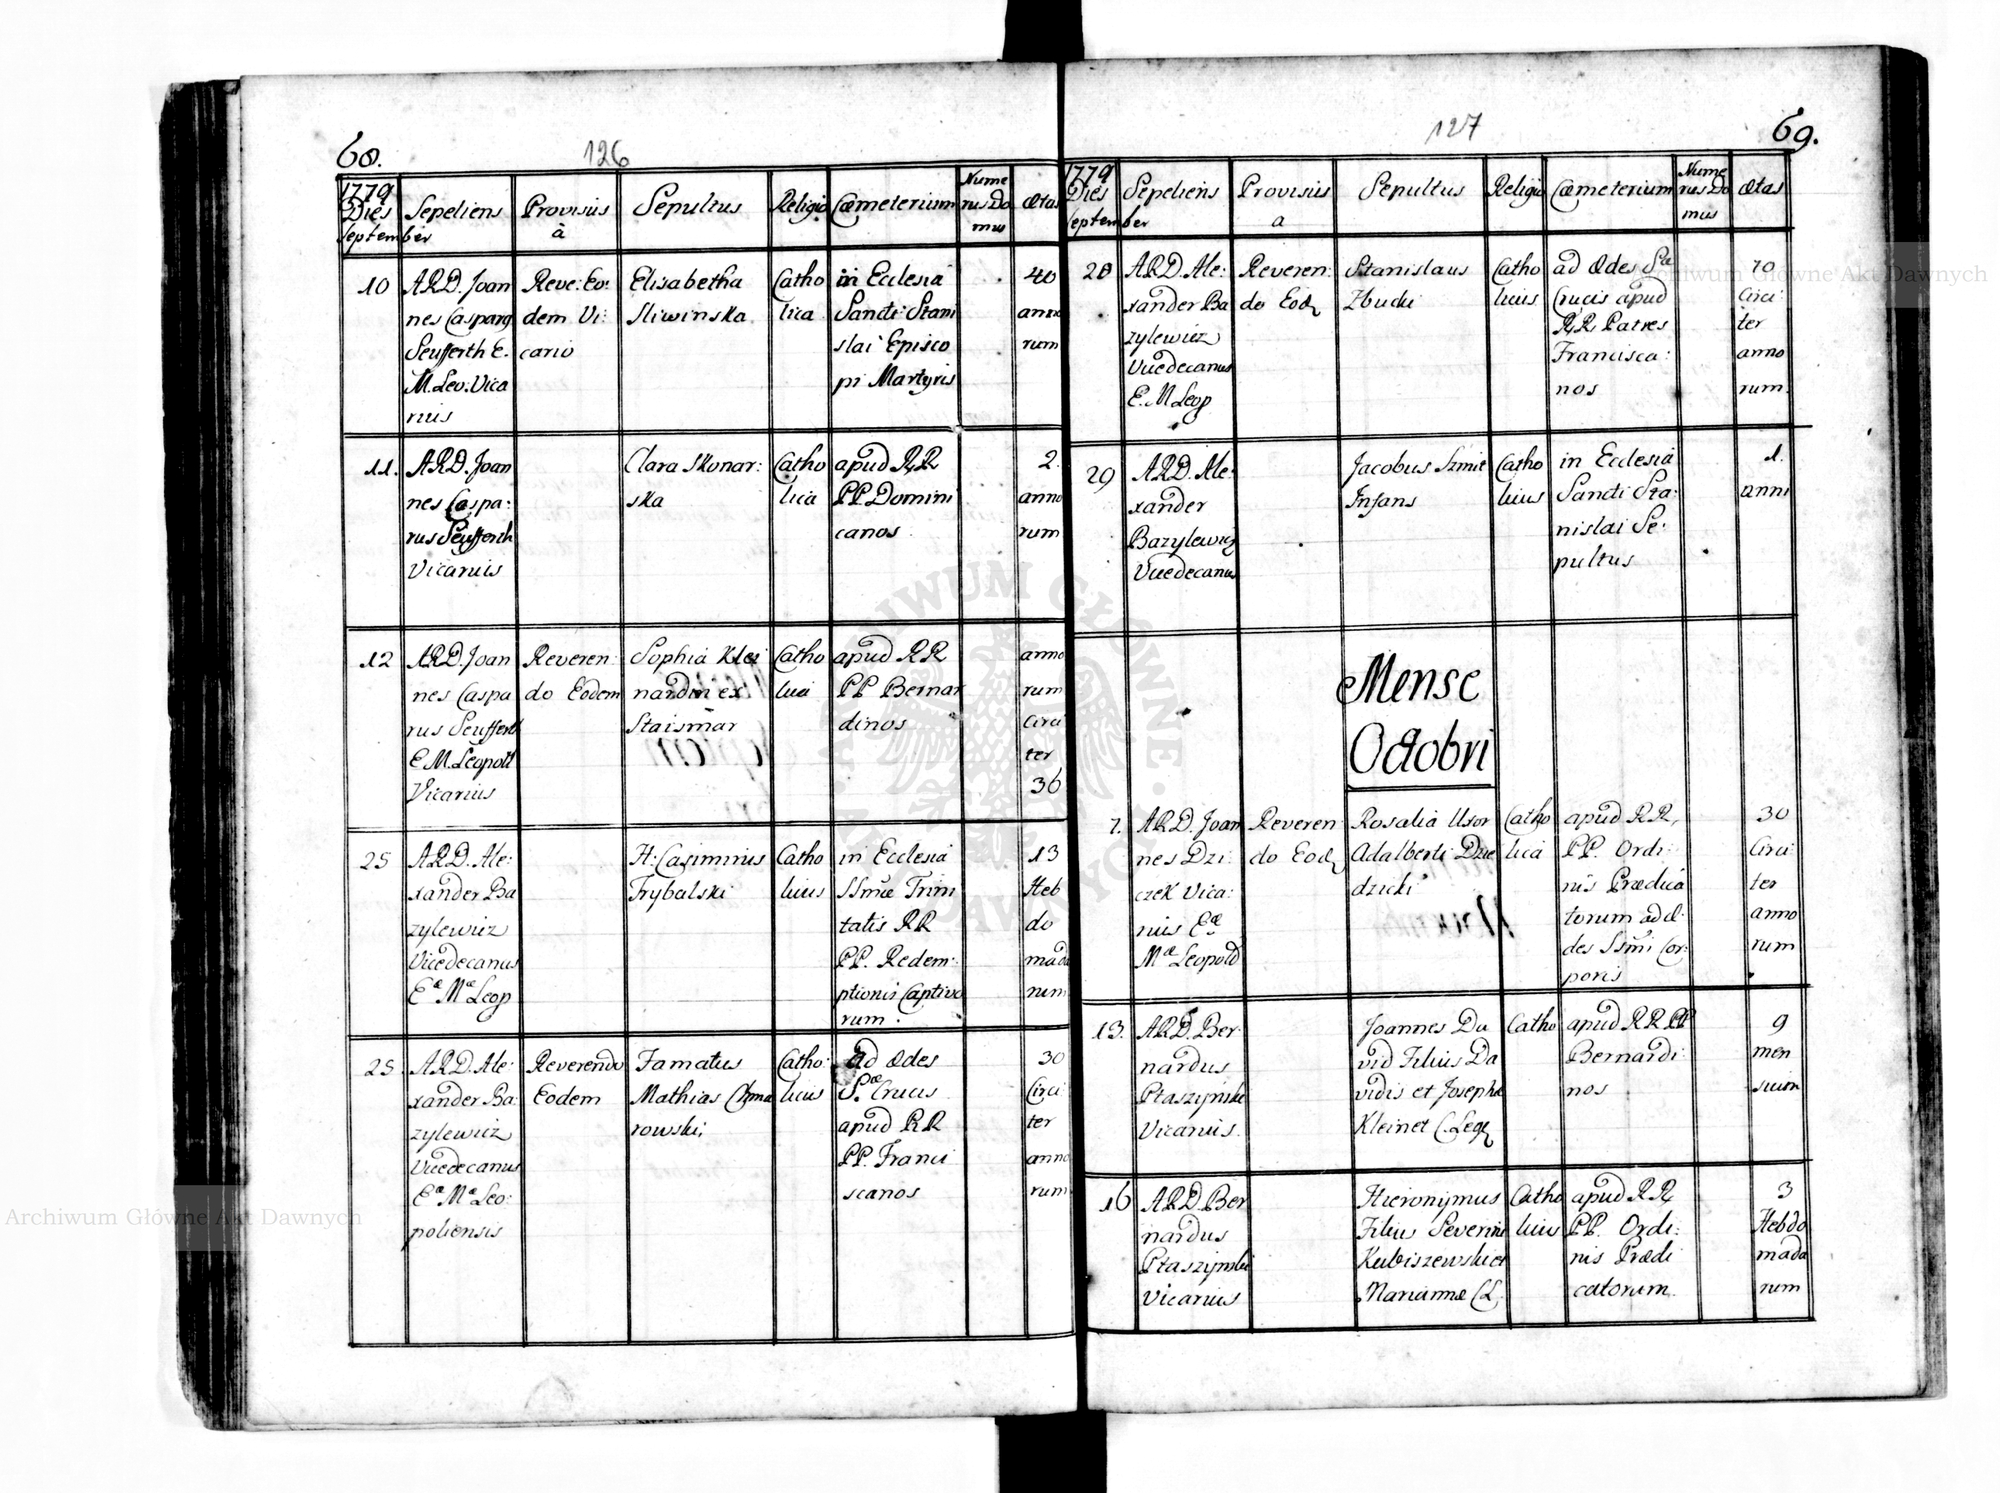 68.
126
1779
Dies
September
Sepeliens
Provisus
à
Sepultus
Religio
Cæmeterium
Nume
rus Do
mus
Ætas
10
A.R.D. Joan
nes Caspar9
Seufferth E.
M. Leo: Vica
rius
Reve: Eo:
dem Vi:
cario
Elisabetha
Sliwinska
Catho
lica
in Ecclesia
Sancti Stani
slai Episco
pi Martyris
40
anno
rum
11.
A.R.D. Joan
nes Caspa:
rus Seufferth
Vicarius
Clara Skonar:
ska
Catho
lica
apud RR
PP Domini
canos
2.
anno
rum
12
A.R.D. Joan
nes Caspa
rus Seufferth
E M. Leopoli
Vicarius
Reveren:
do Eodem
Sophia Klei
nardin ex
Staismar
Catho
lica
apud RR
PP Bernar
dinos
anno
rum
circi
ter
36
25
A.R.D. Ale:
xander Ba
zylewicz
Vicedecanus
Eæ Mæ Leop
H: Casimirus
Trybalski
Catho
licus
in Ecclesia
SSmæ Trini
tatis RR
PP. Redem:
ptionis Captivo
rum.
13
Heb
do
mada
rum
25
A.R.D. Ale:
xander Ba:
zylewicz
Vicedecanus
Eæ Mæ Leo:
poliensis
Reverendo
Eodem
Famatus
Mathias Chma
rowski
Catho:
licus
ad Ædes
Sæ Crucis
apud RR
PP. Franci
scanos
30
Circi
ter
anno
rum
127
69.
1779
Dies
September
Sepeliens
Provisus
a
Sepultus
Religio
Cæmeterium
Nume
rus Do
mus
Ætas
28
A.R.D. Ale:
xander Ba
zylewicz
Vicedecanus
E. M Leop
Reveren:
do Eod
Stanislaus
Zbucki
Catho
licus
ad Ædes Sæ
Crucis apud
RR Patres
Francisca:
nos
70
Circi
ter
anno
rum.
29
A.R.D. Ale:
xander
Bazylewicz
Vicedecanus
Jacobus Szmit
Infans
Catho
licus
in Ecclesia
Sancti Sta:
nislai Se:
pultus
1.
anni
Mense
Octobri
7.
A.R.D. Joan
nes Dzi:
czek Vica:
rius Eæ
Mæ Leopold
Reveren:
do Eod
Rosalia Uxor
Adalberti Dzie
dzicki
Catho
lica
apud RR,
PP. Ordi:
nis Prædica
torum ad Æ
des SSmi Cor:
poris
30
Circi:
ter
anno
rum
13.
A.R.D. Ber:
nardus
Ptaszynski
Vicarius.
Joannes Da
vid Filius Da
vidis et Josephæ
Kleinet C. Leg
Catho
apud RR PP
Bernardi:
nos
9
men
sium
16
A.R.D. Ber
nardus
Ptaszynski
Vicarius
Hieronymus
Filius Severini
Kubiszewski et
Mariannæ C L.
Catho
licus
apud RR,
PP. Ordi:
nis Prædi
catorum.
3
Hebdo
mada
rum
ARCHIWUM GŁÓWNE AKT DAWNYCH
Archiwum Główne Akt Dawnych
Archiwum Główne Akt Dawnych